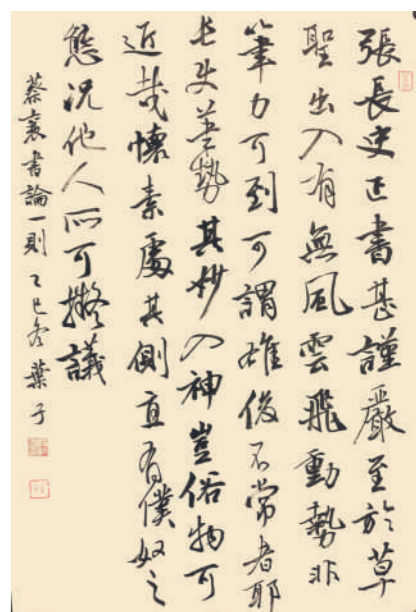 張長史正書甚謹嚴至於草
聖出入有無風雲飛動勢非
筆力可到可謂雄俊不常者耶
長史草勢其妙入神豈俗物可
近哉懷素處其側直有僕奴之
態況他人所可擬議
蔡襄書論一則 乙巳冬 葉子